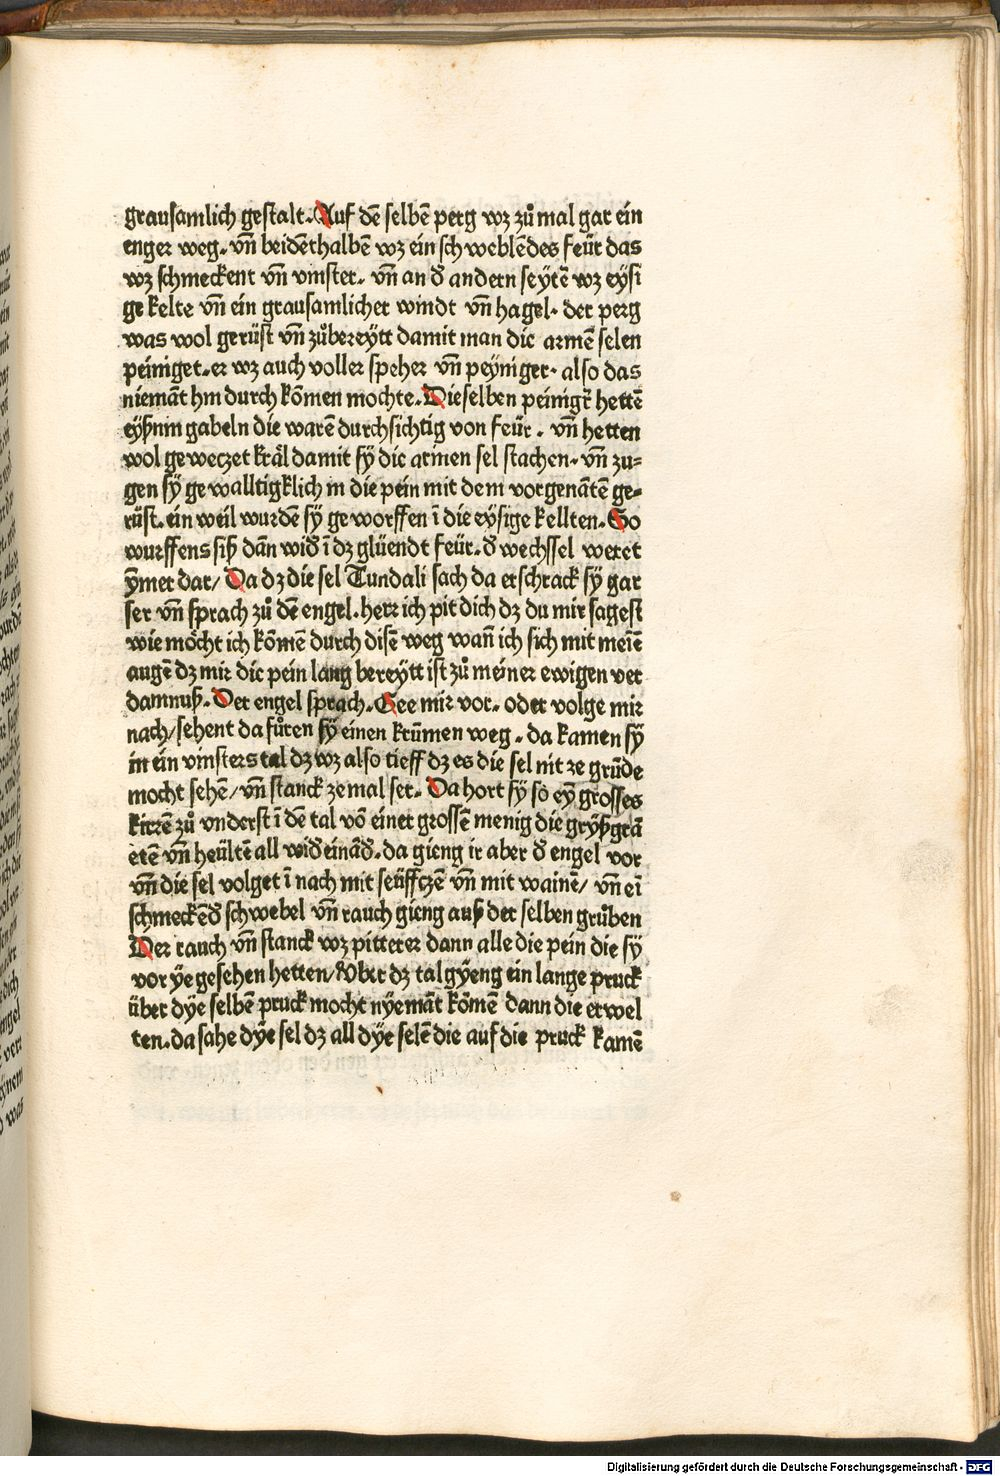 grausamlich gestalt. Auf dē selbē perg wz zůmal gar ein
enger weg. vn̄ beidēthalbē wz ein schweblēdes feür das
wz schmeckent vn̄ vinster. vn̄ an đ andern seytē wz eysi
ge kelte vn̄ ein grausamlicher windt vn̄ hagel. der perg
was wol gerüst vn̄ zůbereÿtt damit man die armē selen
peiniget. er wz auch voller speher vn̄ peÿniger. also das
niemāt hin durch kōmen mochte. Dieselben peinigr̄ hettē
eyßnin gabeln die warē durchsichtig von feür. vn̄ hetten
wol geweczet kräl damit sÿ die armen sel stachen. vn̄ zu=
gen sÿ gewalltigklich in die pein mit dem vorgenātē ge=
rüst. ein weil wurdē sÿ geworffen ī die eysige kellten. So
wurffens siß dān widđ ī dz glüendt feür. đ wechssel weret
ÿmer dar/ Da dz die sel Tundali sach da erschrack sÿ gar
ser vn̄ sprach zů dē engel. herr ich pit dich dz du mir sagest
wie möcht ich kōmē durch disē weg wan̄ ich sich mit meīē
augē dz mir die pein lang bereÿtt ist zů meiner ewigen ver
damnuß. Der engel sprach. Gee mir vor. oder volge mir
nach/ sehent da fůren sÿ einen krūmen weg. da kamen sÿ
in ein vinsters tal dz wz also tieff dz es die sel nit ze grūde
mocht sehē/ vn̄ stanck ze mal ser. Da hort sÿ so eÿ grosses
kirzē zů vnderst ī dē tal vō einer grossē menig die grÿßgrā
etē vn̄ heültē all wiđ eināđ. da gieng ir aber đ engel vor
vn̄ die sel volget ī nach mit seüffczē vn̄ mit wainē/ vn̄ eī
schmeckēđ schwebel vn̄ rauch gieng auß der selben grůben
Der rauch vn̄ stanck wz pitterer dann alle die pein die sÿ
vor ÿe gesehen hetten/ Vber dz tal gÿeng ein lange pruck
über dÿe selbē pruck mocht nÿemāt kōmē dann die erwel
ten. da sahe dÿe sel dz all dÿe selē die auf die pruck kamē
Digitalisierung gefördert durch die Deutsche Forschungsgemeinschaft - DFG